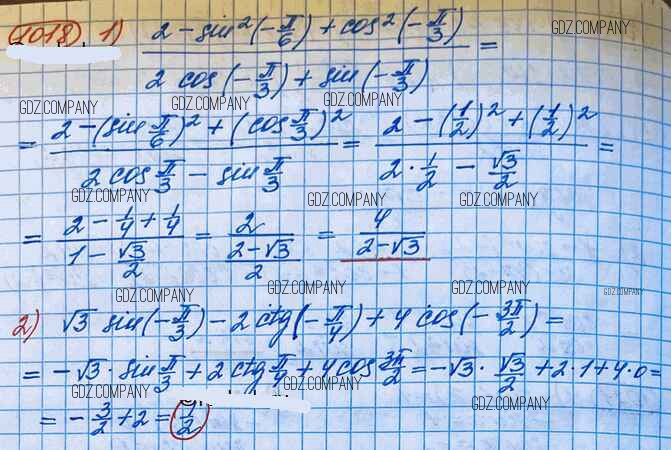 1018. 1) (2 - sin²(-π/6) + cos²(-π/3)) / (2 cos(-π/3) + sin(-π/3)) =
GDZ.COMPANY
GDZ.COMPANY GDZ.COMPANY GDZ.COMPANY
= (2 - (sin π/6)² + (cos π/3)²) / (2 cos π/3 - sin π/3) = (2 - (1/2)² + (1/2)²) / (2 · 1/2 - √3/2) =
GDZ.COMPANY GDZ.COMPANY GDZ.COMPANY
= (2 - 1/4 + 1/4) / (1 - √3/2) = 2 / ((2-√3)/2) = 4 / (2-√3)
GDZ.COMPANY GDZ.COMPANY GDZ.COMPANY
2) √3 sin(-π/3) - 2 ctg(-π/4) + 4 cos(-3π/2) =
= -√3 · sin π/3 + 2 ctg π/4 + 4 cos 3π/2 = -√3 · √3/2 + 2·1 + 4·0 =
GDZ.COMPANY GDZ.COMPANY GDZ.COMPANY
= -3/2 + 2 = 1/2